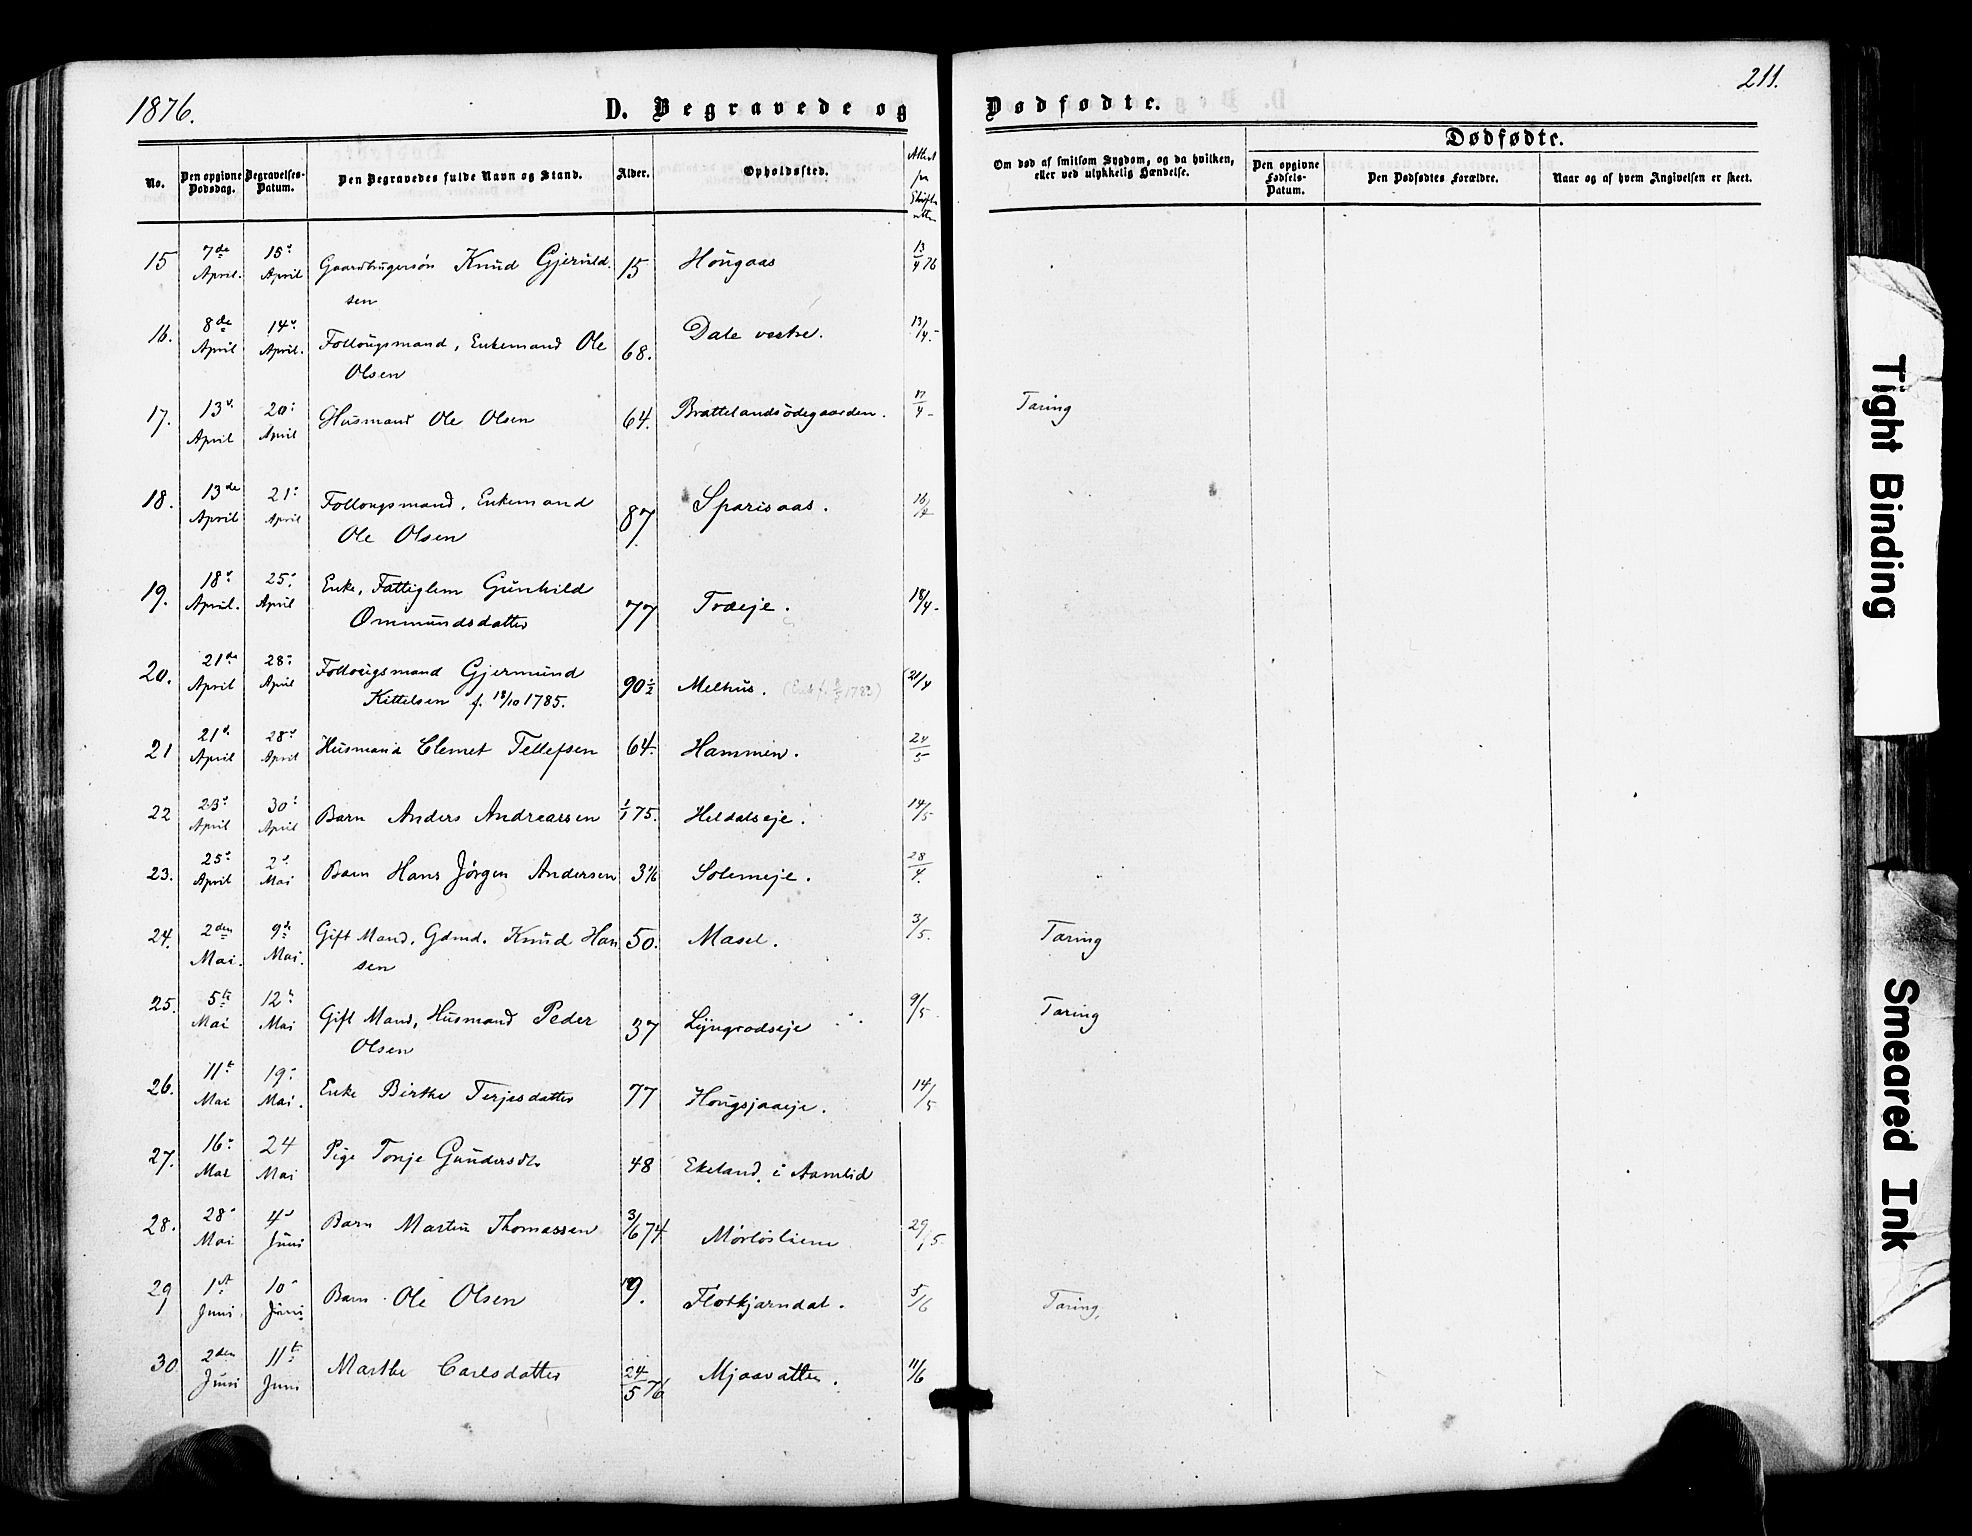 1876.
D. Begravede og
Dødfødte.
211.
No.
Den opgivne Dødsdag.
Begravelses-Datum.
Den Begravedes fulde Navn og Stand.
Alder.
Opholdssted.
Attest
Om død af smitsom Sygdom, og da hvilken, eller ved ulykkelig Hændelse.
Dødfødte.
Den opgivne Fødsels-Datum.
Den Dødfødtes Forældre.
Naar og af hvem Angivelsen er skeet.
15 7de April. 15de April Gaardbrugersøn Knud Gjeruld- 15 Hougaas 13/4 76
sen
16. 8de April 14de April. Føllougsmand, Enkemand Ole 68. Dale vestre. 13/4.-
Olsen
17. 13de April 20de April Husmand Ole Olsen 64. Brattelandsødegaarden. 17/4 - Tæring
18. 13de April 21de April Føllougsmand, Enkemand 87. Sparisaas. 16/4
Ole Olsen
19. 18de April. 25de April Enke, Fattiglem Gunhild 77 Træeje. 18/4-
Ommundsdatter
20. 21de April 28de April Føllougsmand Gjermund 90 1/2 Melhus. 21/4
Kittelsen f. 18/10 1785.
21 21de April 28de April Husmand Clemet Tellefsen 64. Hammen. 24/5
22 23de April 30de April Barn Anders Andreassen 1/1 75. Heldalseje. 14/5
23. 25de April 2de Mai Barn Hans Jørgen Andersen Solemeje. 28/4.
24. 2den Mai. 9de Mai. Gift Mand, Gdmd. Knud Han 50. Masel. 3/5. Tæring
sen
25. 5te Mai 12te Mai Gift Mand, Husmand Peder 37 Lyngrodseje 9/5. Tæring
Olsen
26. 11te Mai 19de Mai. Enke Birthe Terjesdatter 77 Hougsjaaeje. 14/5
27. 16de Mai 24 Mai Pige Tonje Gundersdtr 48 Ekeland i Aamlid
28. 28de Mai 4de Juni Barn Martin Thomassen 3/6 74. 29/5.
29 1ste Juni. 10de Juni Barn Ole Olsen 9. 5/6 Tæring,
30 2den Juni 11te Juni Marthe Carlsdatter 24/5 76 Mjaavatten. 11/6
Tight Binding
Smeared Ink